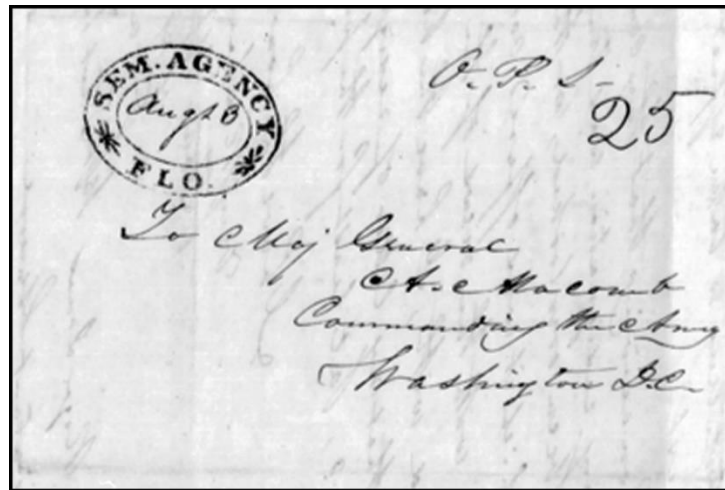 SEM. AGENCY
Augt 3
FLO.
25
To Maj General
A. Macomb
Commanding the Army
Washington D.C.